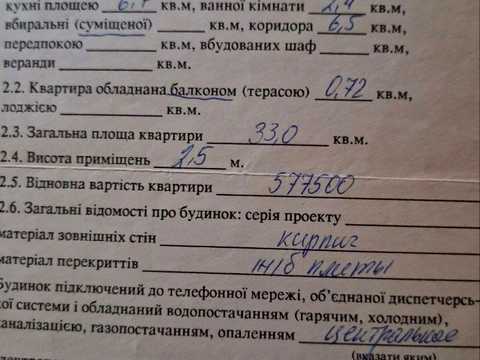 кухні площею 6,7 кв.м, ванної кімнати 2,4 кв.м,
вбиральні (суміщеної) кв.м, коридора 6,5 кв.м,
передпокою кв.м, вбудованих шаф
веранди кв.м.
2.2. Квартира обладнана балконом (терасою) 0,72 кв.м,
лоджією кв.м.
2.3. Загальна площа квартири 33,0 кв.м.
2.4. Висота приміщень 2,5 м.
2.5. Відновна вартість квартири 577500
2.6. Загальні відомості про будинок: серія проекту
матеріал зовнішніх стін кирпич
матеріал перекриттів ж/б плиты
Будинок підключений до телефонної мережі, об'єднаної диспетчерсь-
кої системи і обладнаний водопостачанням (гарячим, холодним),
каналізацією, газопостачанням, опаленням центральное
(вказати яким)